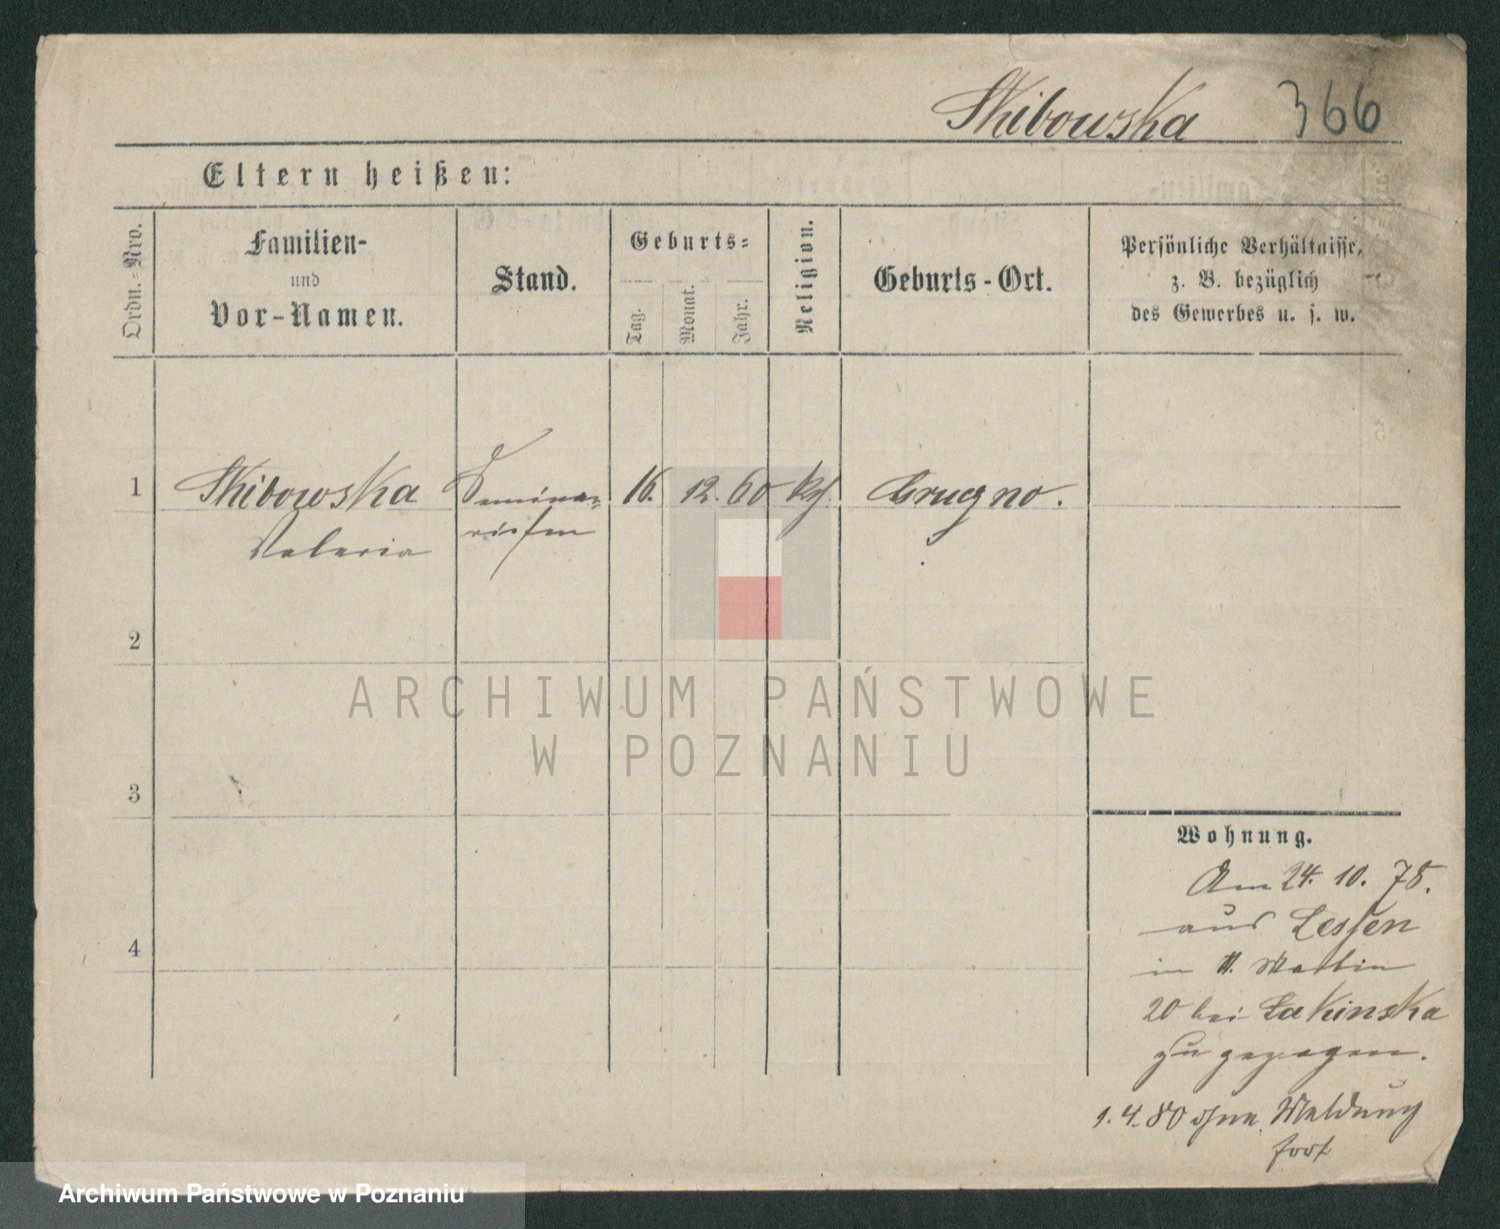 Skibowska 366
Eltern heißen:
Ordn.-Nro.
Familien-
und
Vor-Namen.
Stand.
Geburts-
Tag.
Monat.
Jahr.
Religion.
Geburts-Ort.
Persönliche Verhältnisse,
z. B. bezüglich
des Gewerbes u. s. w.
1 Skibowska Semina- 16. 12. 60 kth.
Valeria
2
3
4
ARCHIWUM PAŃSTWOWE
W POZNANIU
Wohnung.
Am 24. 10. 78.
aus Lessen
in St. Martin
20 bei Łakinska
zugezogen.
1. 4. 80 ohne Meldung
fort
Archiwum Państwowe w Poznaniu